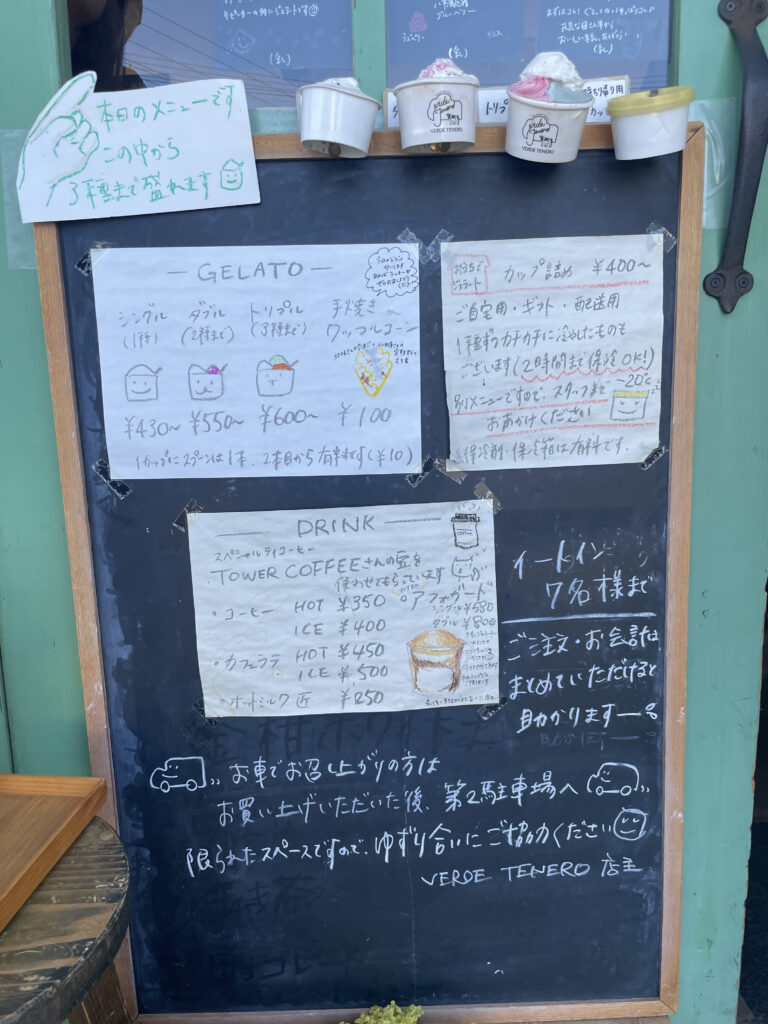 リピーターの多いジェラートです
(乳)
(乳)
おいしい牛乳、ありがとう
(乳)
本日のメニューです
この中から
3種まで盛れます
VERDE TENERO
VERDE TENERO
トリプ
持ち帰り用
カッ
GELATO
シングル ダブル トリプル 手焼き
(1種) (2種まで) (3種まで) ワッフルコーン
¥430〜 ¥550〜 ¥600〜 ¥100
1カップにスプーンは1本、2本目から有料です(¥10)
おうちで
ジェラート
カップ詰め ¥400〜
ご自宅用・ギフト・配送用
1種ずつカチカチに冷やしたものも
ございます(2時間まで保冷OK!)
別メニューですので、スタッフまで
お声かけください
-20℃
※保冷剤・保冷箱は有料です.
DRINK
スペシャルティコーヒー
TOWER COFFEEさんの豆を
使わせてもらっています
・コーヒー HOT ¥350
ICE ¥400
・カフェラテ HOT ¥450
ICE ¥500
・ホットミルク 匠 ¥250
アフォガード
シングル ¥680
ダブル ¥800
イートイン
7名様まで
ご注文・お会計は
まとめていただけると
助かります
お車でお召し上がりの方は
お買い上げいただいた後、第2駐車場へ
限られたスペースですので、ゆずり合いにご協力ください
VERDE TENERO 店主